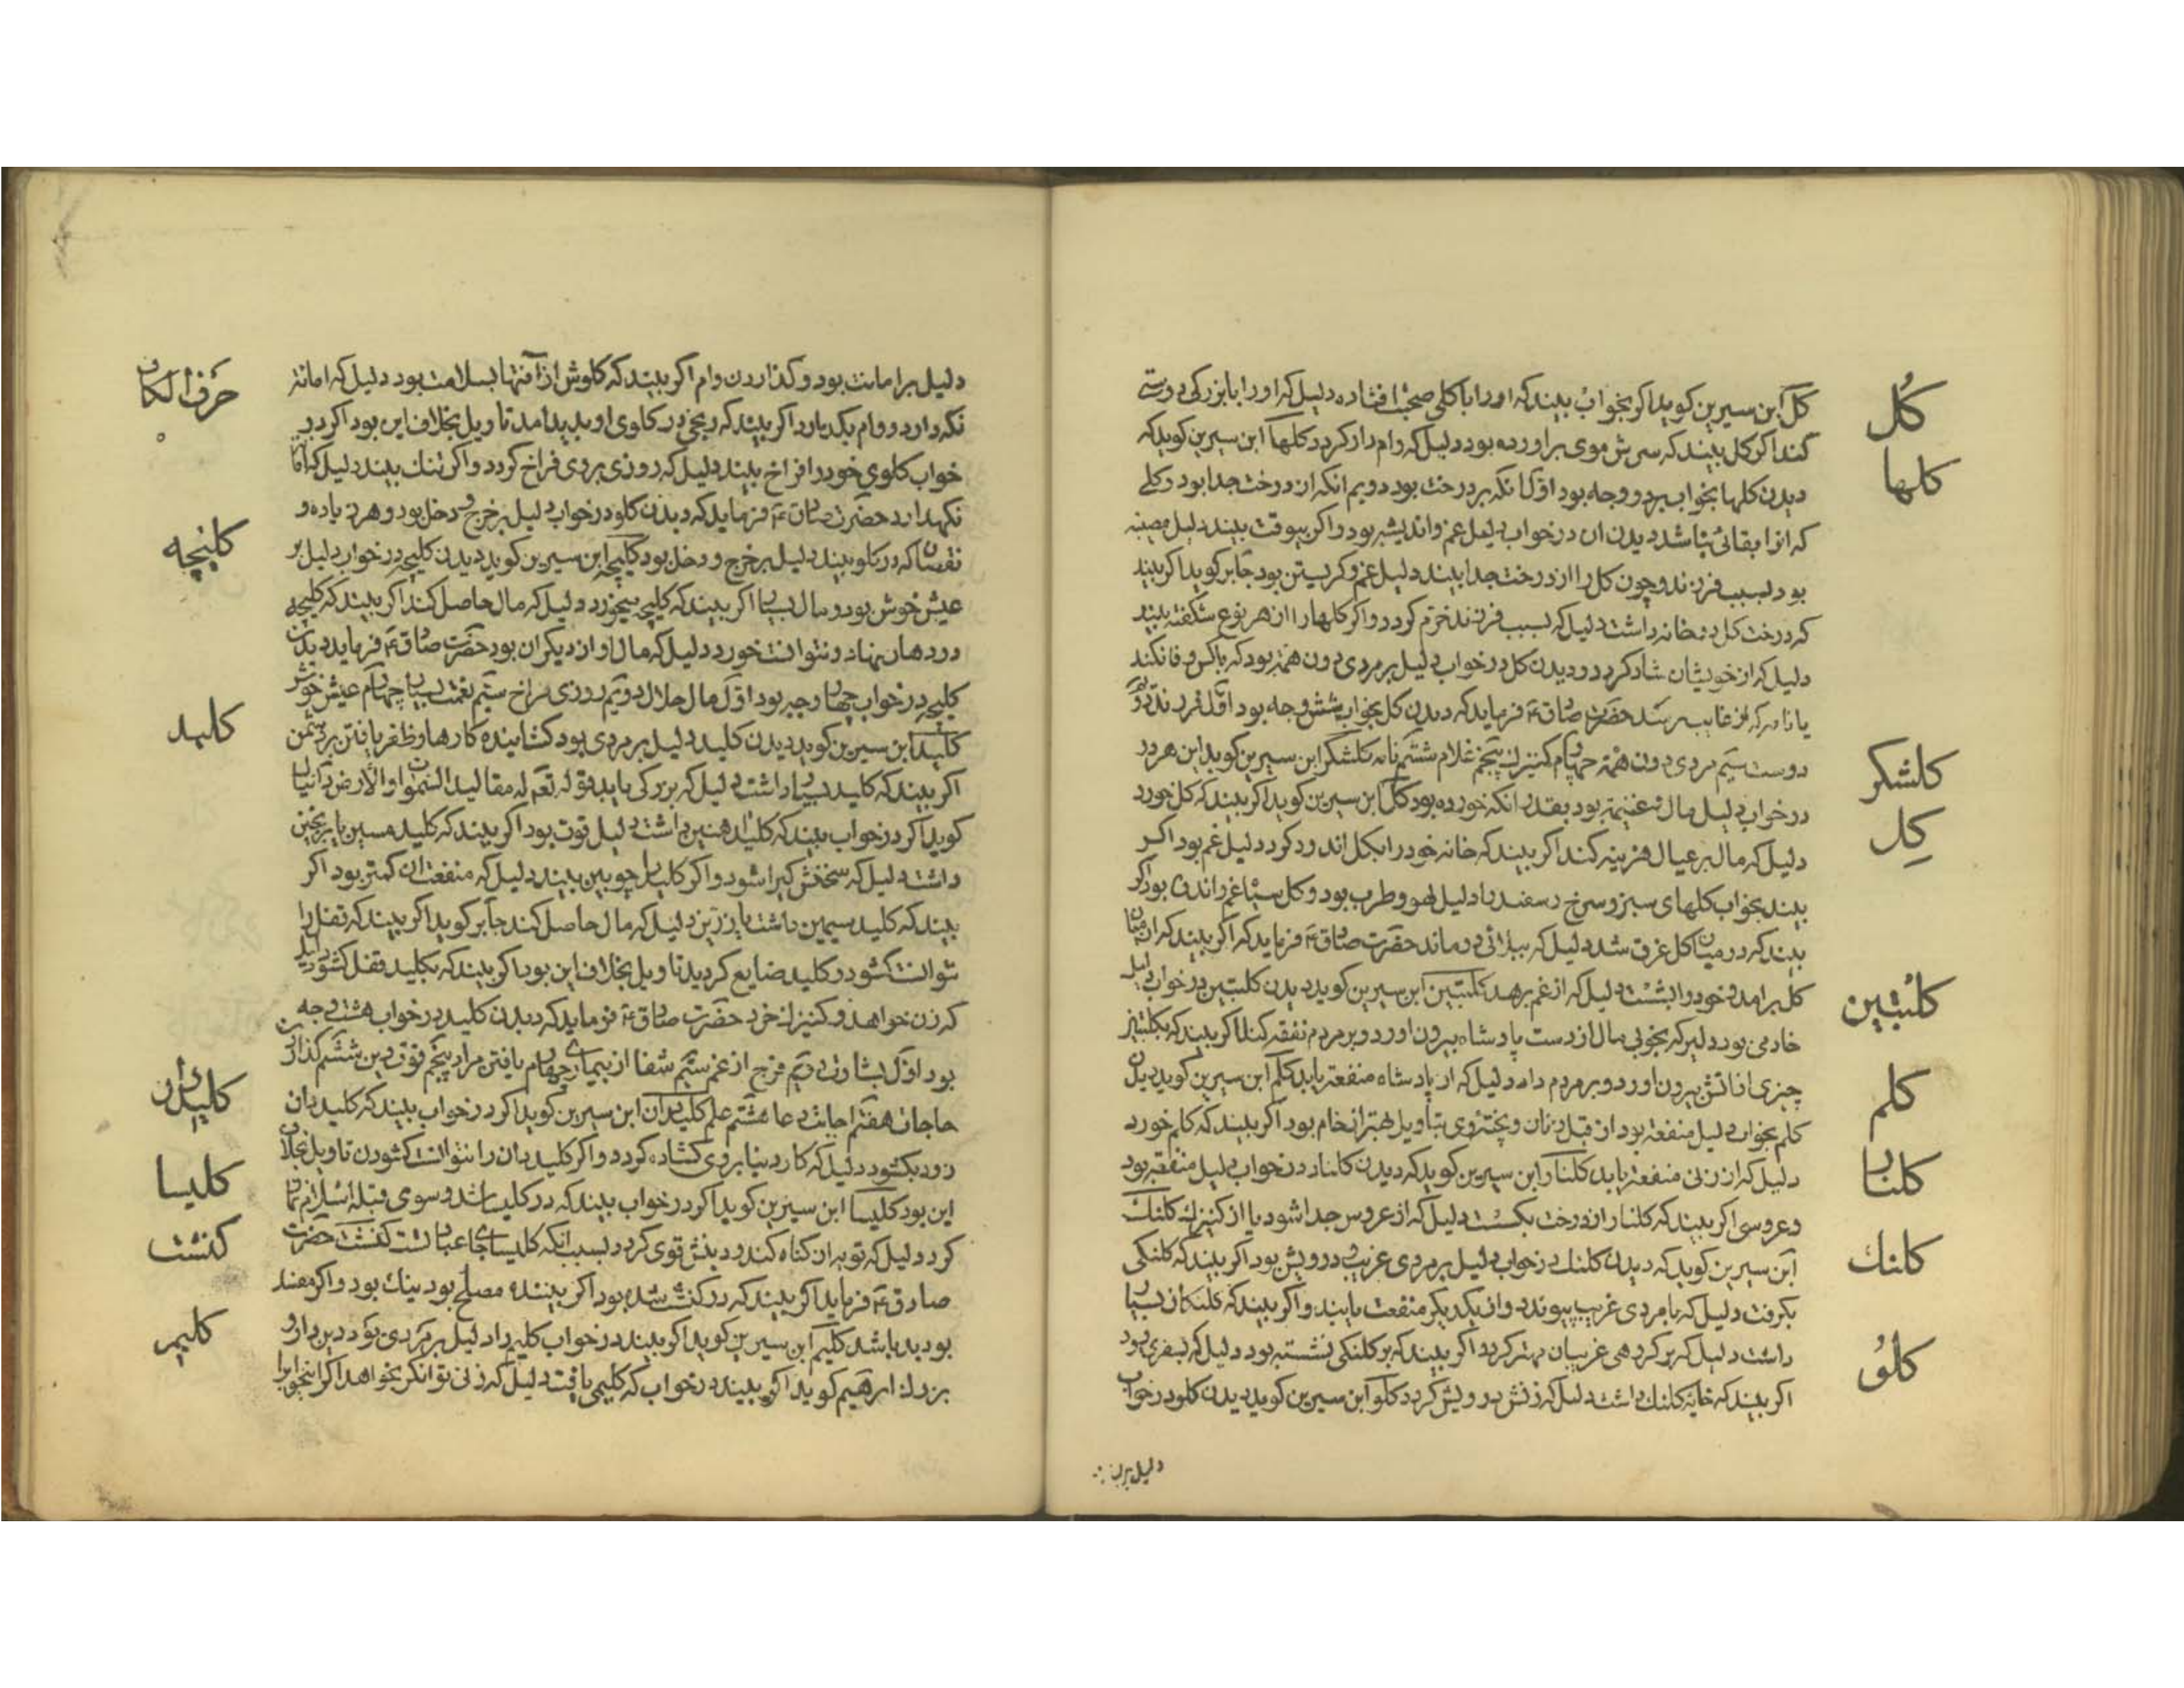 کل ابن سیرین کوید اکر بخواب بیند که او را با کلی صحبت افتاده دلیل که او را با بزرکی دوستی
کُل
کند اکر کل بیند که سرش موی براورده بود دلیل که وام دار کردد کلها ابن سیرین کوید که
کلها
دیدن کلها بخواب بر دو وجه بود اوّل انکه بر درخت بود دویم انکه از درخت جدا بود و کلی
که انرا بقائی نباشد دیدن ان در خواب دلیل غم و اندیشه بود و اکر بیوقت بیند دلیل مصیبه
بود بسبب فرزند و چون کل را از درخت جدا بیند دلیل غم و کریستن بود جابر کوید اکر بیند
که درخت کل در خانه داشت دلیل که بسبب فرزند خرّم کردد و اکر کلها را از هر نوع شکفته بیند
دلیل که از خویشان شاد کردد و دیدن کل در خواب دلیل بر مردی دون همّة بود که با کس وفا نکند
یا نامه که از غایب رسد حضرت صادق ع فرماید که دیدن کل بخواب شش وجه بود اوّل فرزند دویم
دوست سیّم مردی دون همّة چهارم کنیزک پنجم غلام ششم نامه کلشکر ابن سیرین کوید این هر دو
کلشکر
در خواب دلیل مال و غنیمة بود بقدر انکه خورده بود کل ابن سیرین کوید اکر بیند که کل خورد
کِل
دلیل که مال بر عیال هزینه کند اکر بیند که خانه خود را بکل اندود کرد دلیل غم بود اکر
بیند بخواب کلهای سبز و سرخ و سفید را دلیل لهو و طرب بود و کل سیاه غم و اندوه بود اکر
بیند که در میان کل غرق شد دلیل که ببلائی درماند حضرت صادق ع فرماید که اکر بیند که از میان
کل برامد و خود را بشست دلیل که از غم برهد کلبتین ابن سیرین کوید دیدن کلبتین در خواب دلیل
کلبتین
خادمی بود دلیر که بخوبی مال از دست پادشاه بیرون اورد و بر مردم نفقه کند اکر بیند که بکلبتین
چیزی از اتش بیرون اورد و بر مردم داد دلیل که از پادشاه منفعة یابد کلم ابن سیرین کوید دیدن
کلم
کلم بخواب دلیل منفعة بود از قبل زنان و پخته وی بتاویل بهتر از خام بود اکر بیند که کلم خورد
دلیل که از زنی منفعة یابد کلنار ابن سیرین کوید که دیدن کلنار در خواب دلیل منفعة بود
کلنار
و عروسی اکر بیند که کلنار از درخت بکست دلیل که از عروس جدا شود یا از کنیزک کلنک
ابن سیرین کوید که دیدن کلنک در خواب دلیل بر مردی غریب و درویش بود اکر بیند که کلنکی
کلنك
بکرفت دلیل که با مردی غریب پیوندد و از یکدیکر منفعت یابند و اکر بیند که کلنکان بسیار
داشت دلیل که بر کروهی غریبان مهتر کردد اکر بیند که بر کلنکی نشسته بود دلیل که بسفری رود
اکر بیند که خایه کلنک داشت دلیل که زنش درویش کردد کلو ابن سیرین کوید دیدن کلو در خواب
کلوُ
دلیل بر
دلیل بر امانت بود و کذاردن وام اکر بیند که کلوش از آفتها بسلامت بود دلیل که امانة
حَرفُ الکاف
نکه دارد و وام بکذارد اکر بیند که رنجی در کلوی او پدید امد تاویل بخلاف این بود اکر در
خواب کلوی خود را فراخ بیند دلیل که روزی بر وی فراخ کردد و اکر تنك بیند دلیل که
نکهدارد حضرت صادق ع فرماید که دیدن کلو در خواب دلیل بر خرج و دخل بود و هر زیاده و
نقصان که در کلو بیند دلیل بر خرج و دخل بود کلیچه ابن سیرین کوید دیدن کلیچه در خواب دلیل بر
کلیٖچه
عیش خوش بود و مال بسیار اکر بیند که کلیچه میخورد دلیل که مال حاصل کند اکر بیند که کلیچه
در دهان نهاد و نتوانست خورد دلیل که مال او از دیکران بود حضرت صادق ع فرماید دیدن
کلیچه در خواب چهار وجه بود اوّل مال حلال دویّم روزی فراخ سیّم نعمت بسیار چهارم عیش خوش
کلید ابن سیرین کوید دیدن کلید دلیل بر مردی بود کشاینده کارها و ظفر یافتن بر دشمن
کلید
اکر بیند که کلید بسیار داشت دلیل که بزرکی یابد قوله تعم له مقالید السموات والارض دانیال
کوید اکر در خواب بیند که کلید اهنین داشت دلیل قوت بود اکر بیند که کلید مسین یا برنجین
داشت دلیل که سخنش کیرا شود و اکر کلید چوبین بیند دلیل که منفعت ان کمتر بود اکر
بیند که کلید سیمین داشت یا زرّین دلیل که مال حاصل کند جابر کوید اکر بیند که قفل را
توانست کشود و کلید ضایع کردید تاویل بخلاف این بود اکر بیند که بکلید قفل کشود دلیل
که زن خواهد و کنیزک خرد حضرت صادق ع فرماید که دیدن کلید در خواب هشت وجه
بود اوّل بشارت دویّم فرج از غم سیّم شفا از بیماری چهارم یافتن مراد پنجم قوّت دین ششم کذاردن
حاجات هفتم اجابت دعا هشتم علم کلیدان ابن سیرین کوید اکر در خواب بیند که کلیدان
کلیدان
زود بکشود دلیل که کار دنیا بر وی کشاده کردد و اکر کلیدان را نتوانست کشودن تاویل بخلاف
این بود کلیسا ابن سیرین کوید اکر در خواب بیند که در کلیسا شد و سوی قبله اسلام نماز
کلیسا
کرد دلیل که توبه از کناه کند و دینش قوی کردد بسبب انکه کلیسا جای عبادتست کنشت حضرت
کنشت
صادق ع فرماید اکر بیند که در کنشت شده بود اکر بیننده مصلح بود نیك بود و اکر مفسد
بود بد باشد کلیم ابن سیرین کوید اکر بیند در خواب کلیم را دلیل بر مردی بود دین دار و
کلیم
بزرك ابرهیم کوید اکر بیند در خواب که کلیمی یافت دلیل که زنی توانکر بخواهد اکر